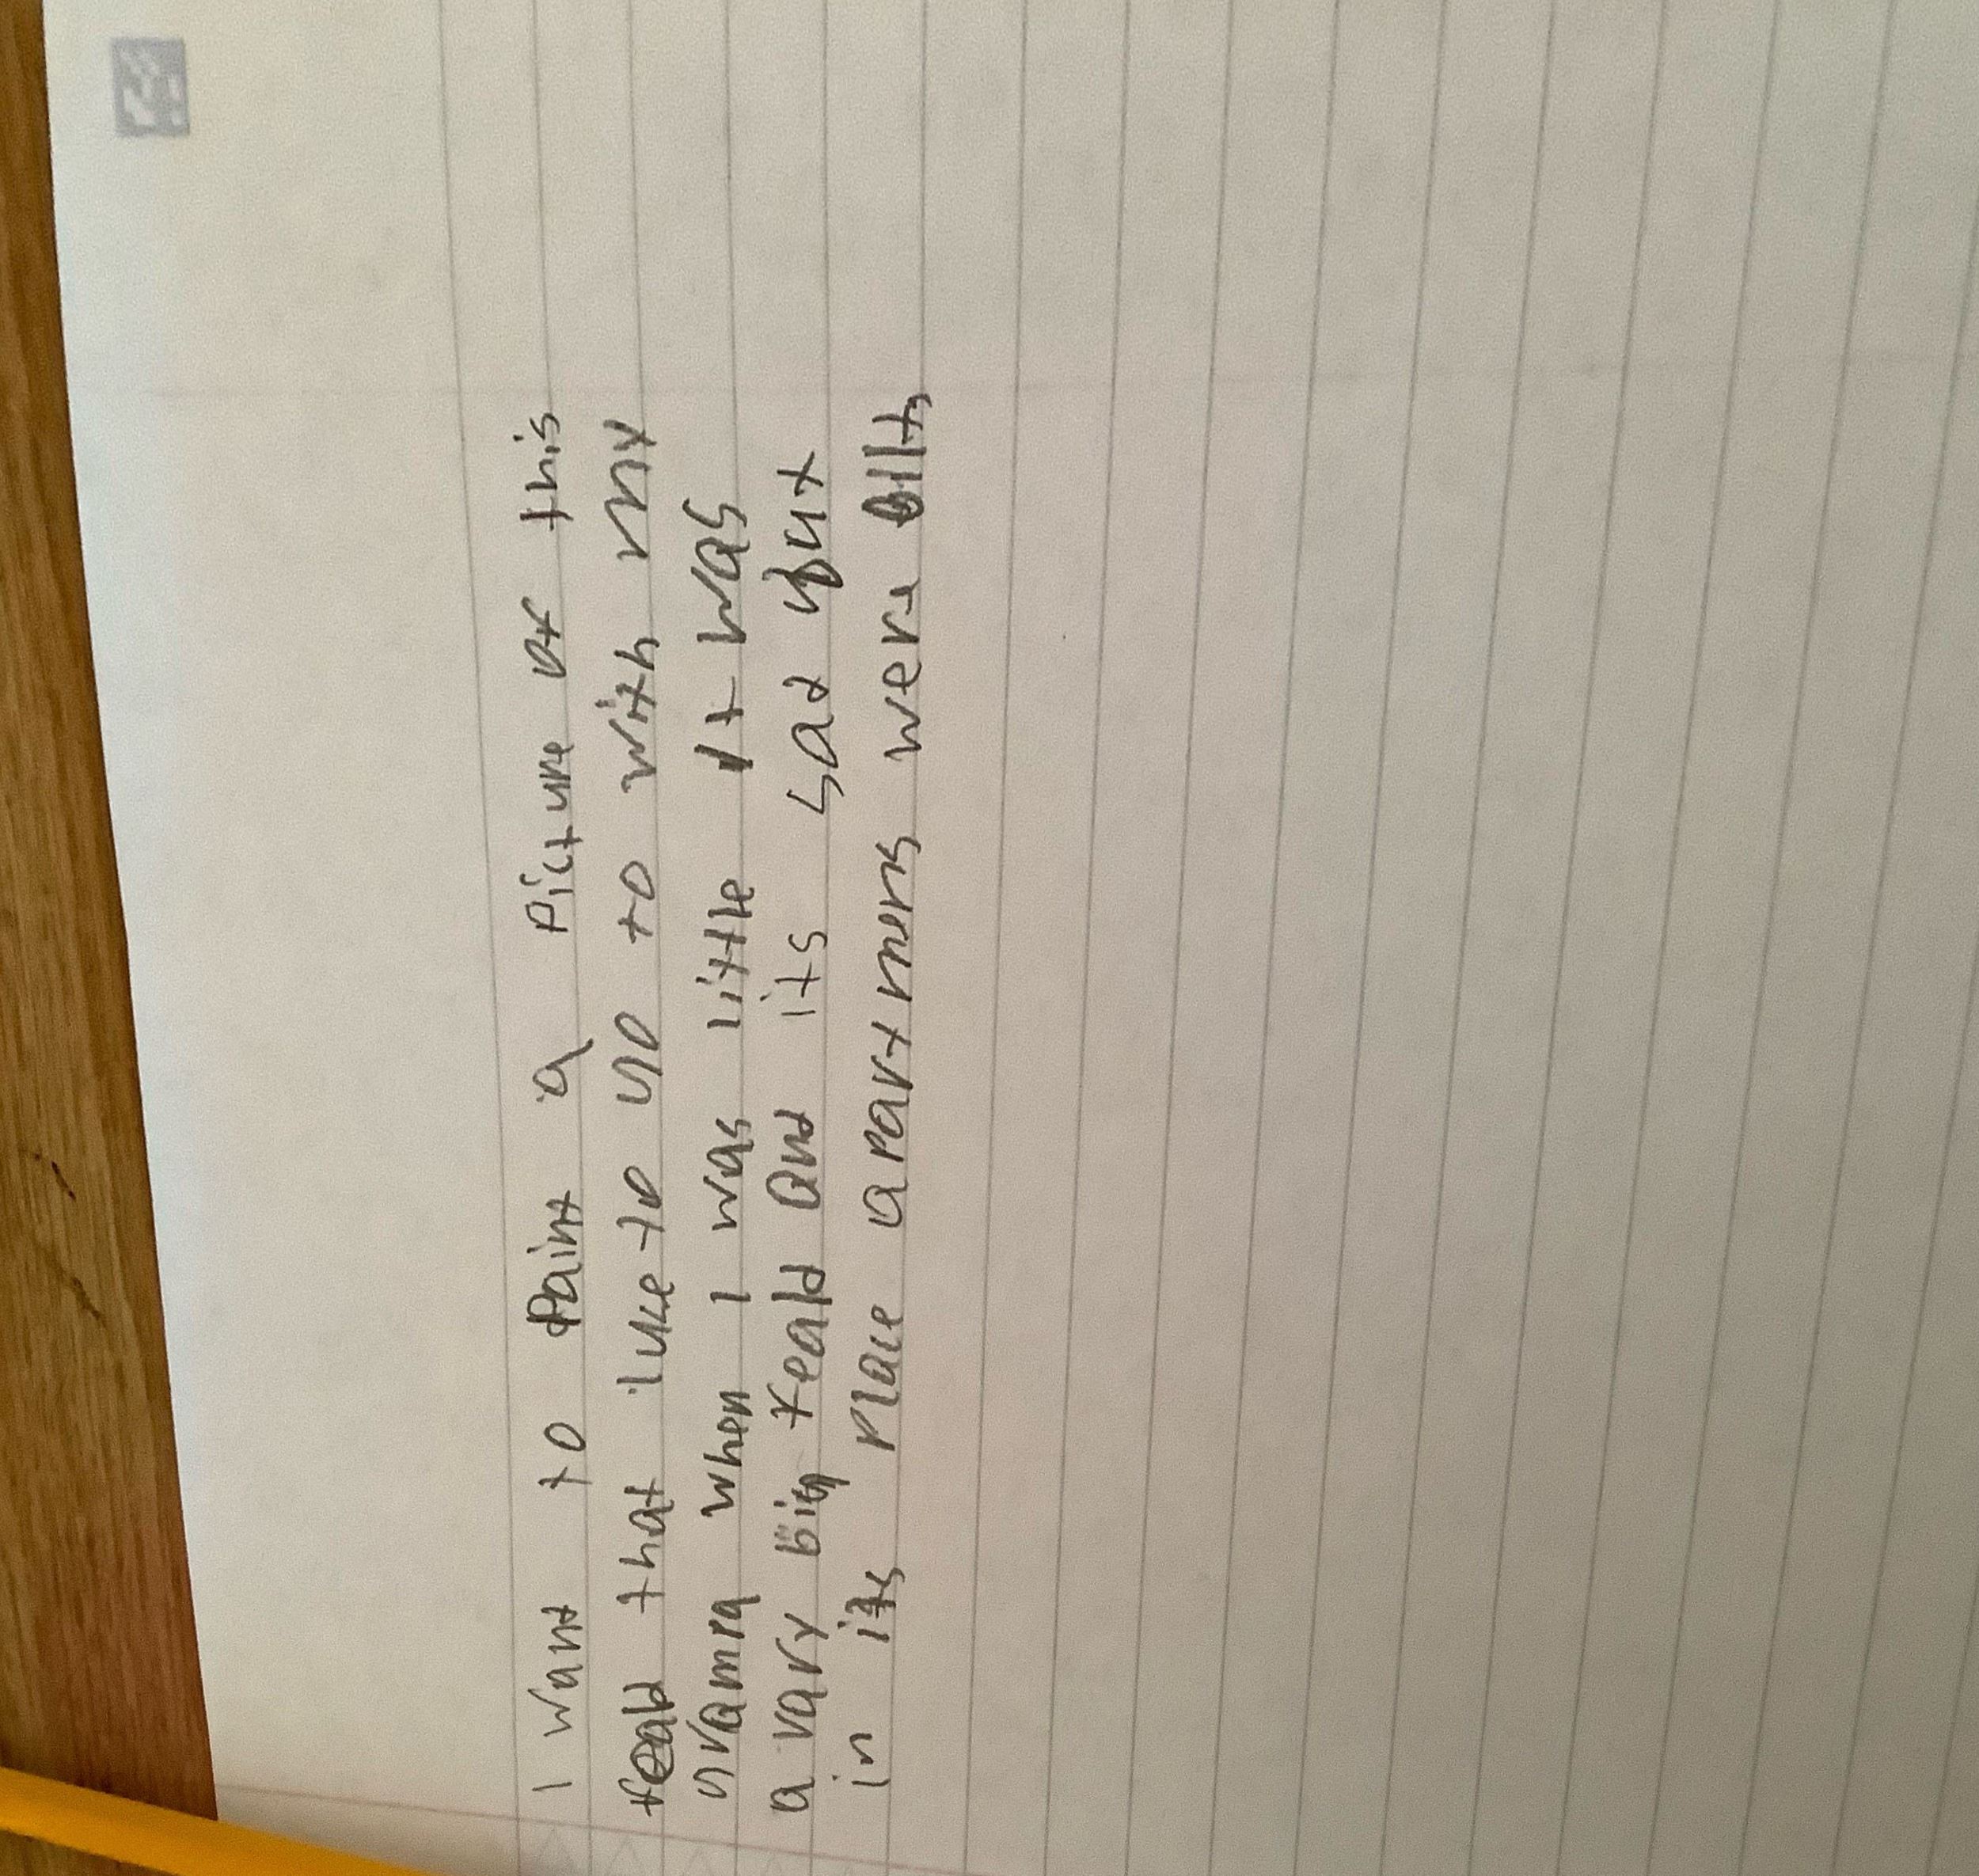 I want to Paint a Picture of this
feald that I use to go to with my
grampa when I was little It was
a vary big feald and its sad but
in its Place apartmens were bilt,